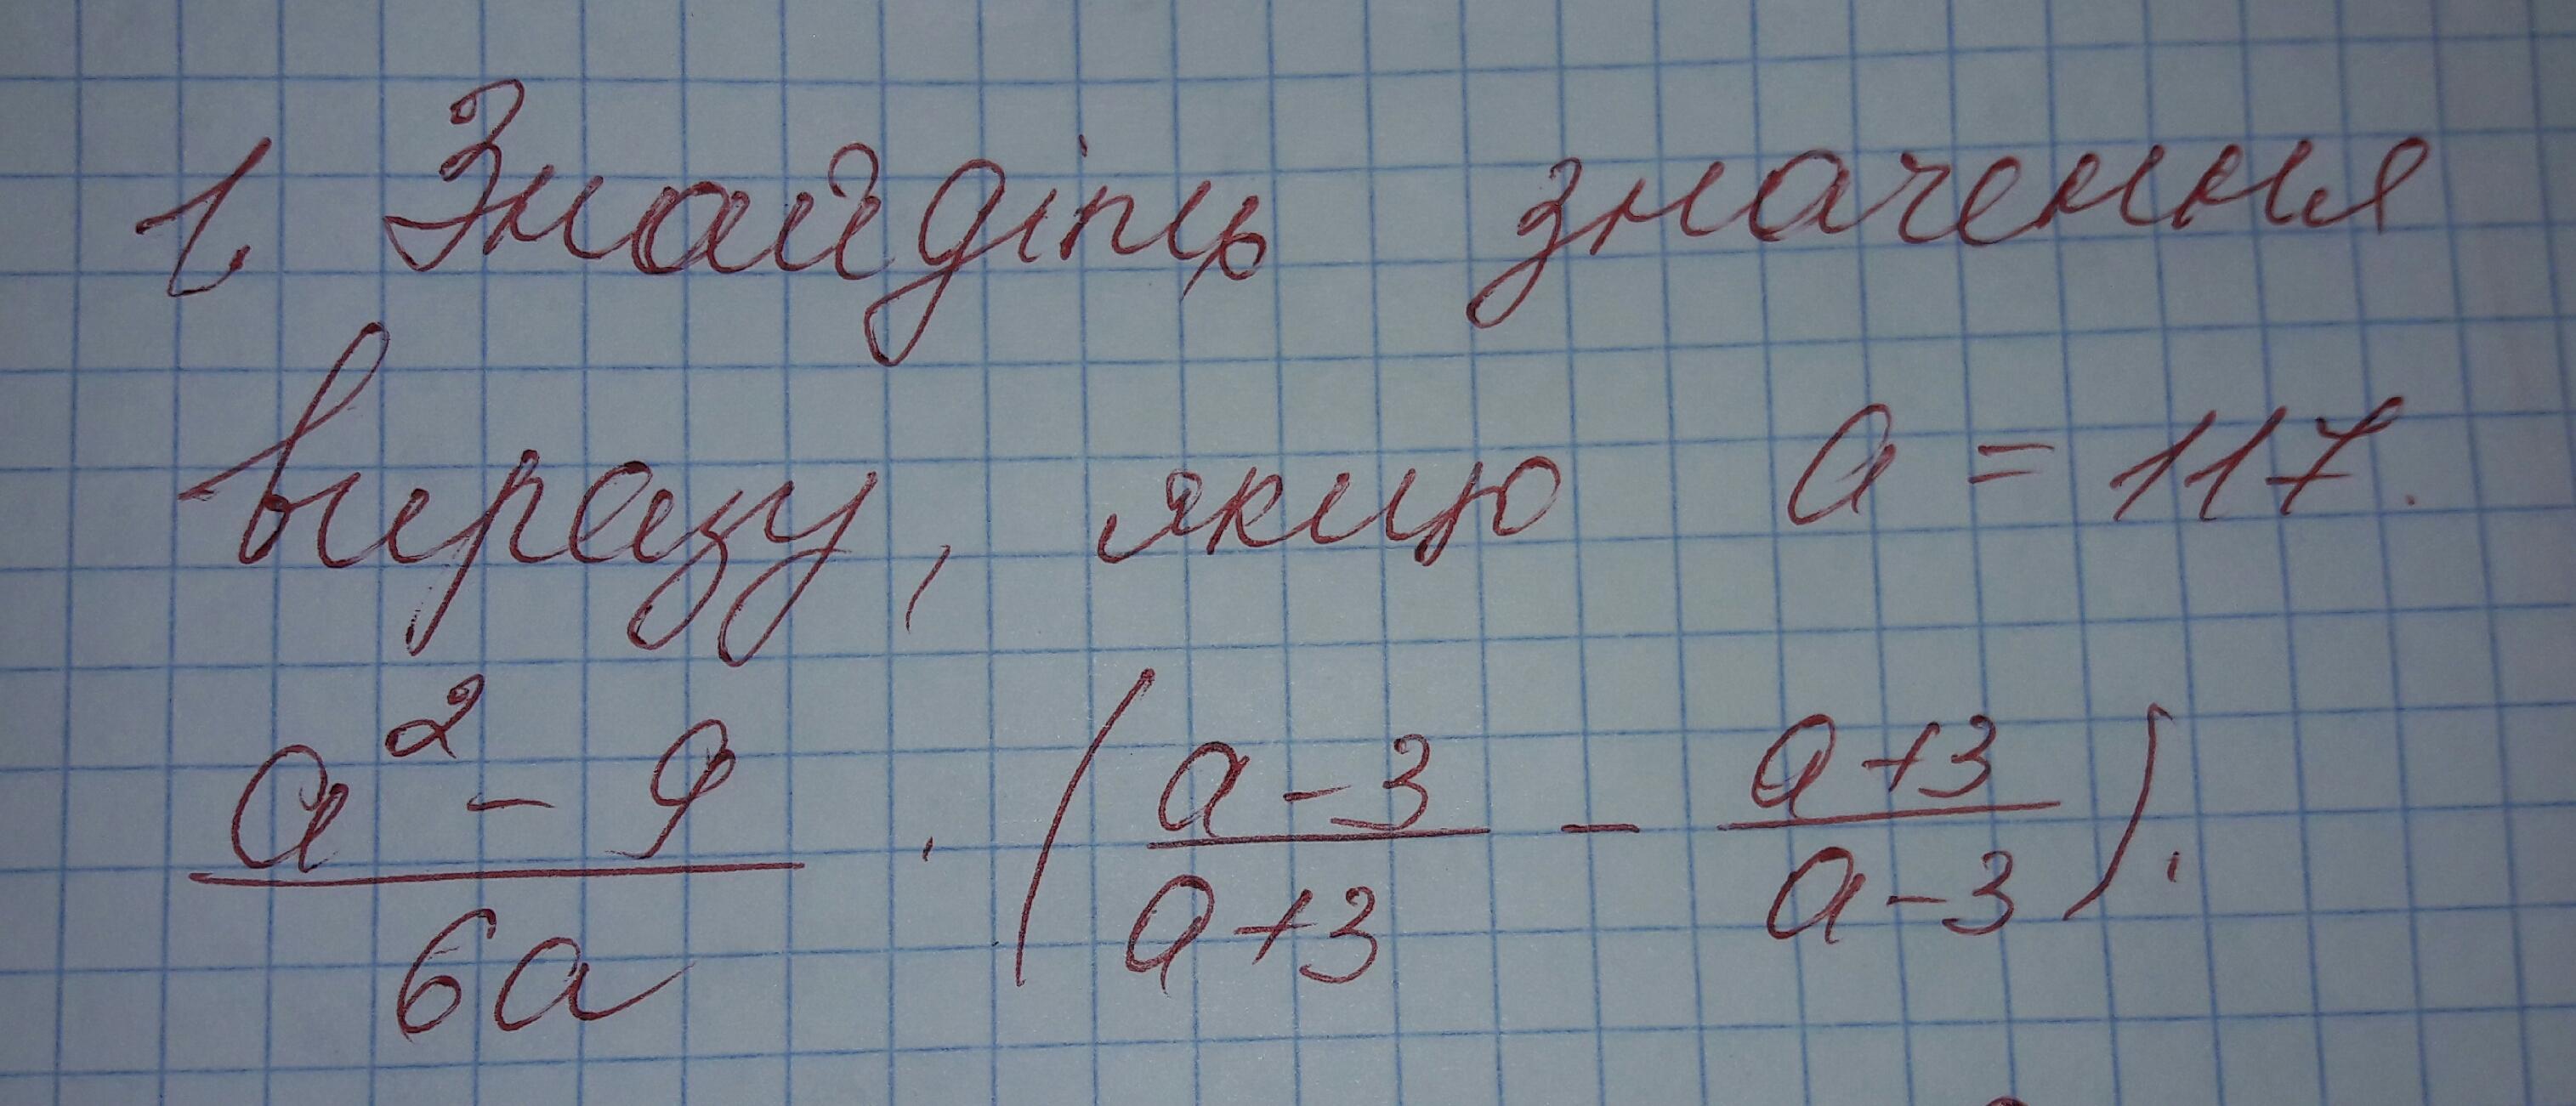 1. Знайдіть значення
виразу, якщо a = 117.
\frac{a^2 - 9}{6a} \cdot \left( \frac{a-3}{a+3} - \frac{a+3}{a-3} \right).